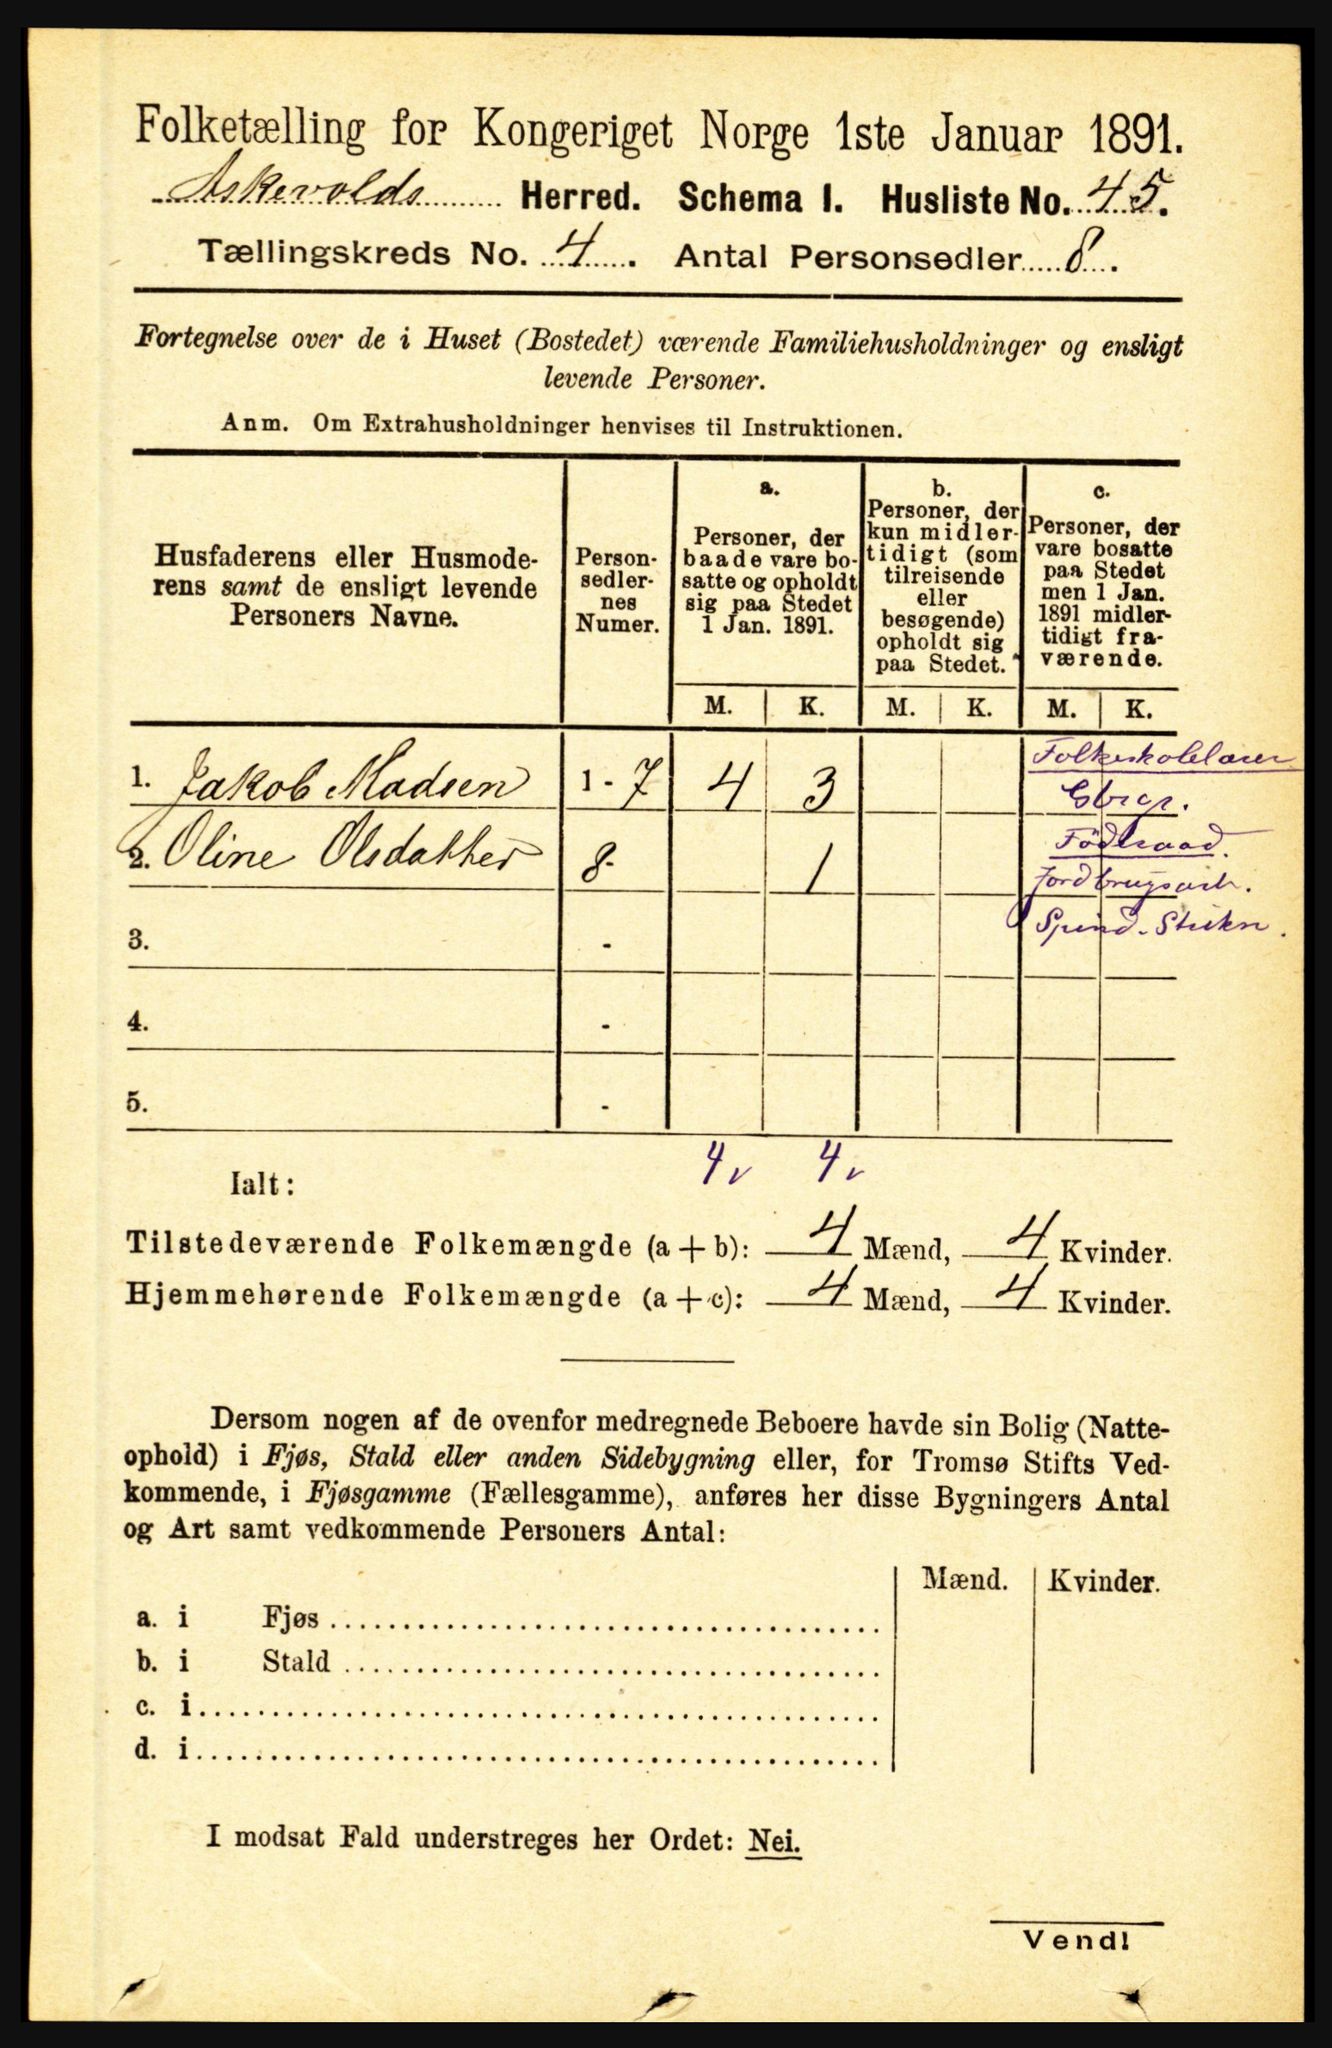 Folketælling for Kongeriget Norge 1ste Januar 1891.
Askevolds Herred. Schema I. Husliste No. 45.
Tællingskreds No. 4. Antal Personsedler 8.
Fortegnelse over de i Huset (Bostedet) værende Familiehusholdninger og ensligt
levende Personer.
Anm. Om Extrahusholdninger henvises til Instruktionen.
Husfaderens eller Husmode-
rens samt de ensligt levende
Personers Navne.
Person-
sedler-
nes
Numer.
a.
Personer, der
baade vare bo-
satte og opholdt
sig paa Stedet
1 Jan. 1891.
b.
Personer, der
kun midler-
tidigt (som
tilreisende
eller
besøgende)
opholdt sig
paa Stedet.
c.
Personer, der
vare bosatte
paa Stedet
men 1 Jan.
1891 midler-
tidigt fra-
værende.
M. K. M. K. M. K.
1. Jakob Madsen 1 - 7 4 3
Folkeskolelærer
Gbr.
2. Oline Olsdatter 8- 1
Föderaad.
Jordbrugsarb.
Spind. Strikn.
3. -
4. -
5. -
4 v 4 v
Ialt:
Tilstedeværende Folkemængde (a + b): 4 Mænd, 4 Kvinder.
Hjemmehørende Folkemængde (a + c): 4 Mænd, 4 Kvinder.
Dersom nogen af de ovenfor medregnede Beboere havde sin Bolig (Natte-
ophold) i Fjøs, Stald eller anden Sidebygning eller, for Tromsø Stifts Ved-
kommende, i Fjøsgamme (Fællesgamme), anføres her disse Bygningers Antal
og Art samt vedkommende Personers Antal:
Mænd. Kvinder.
a. i Fjøs
b. i Stald
c. i
d. i
I modsat Fald understreges her Ordet: Nei.
Vend!